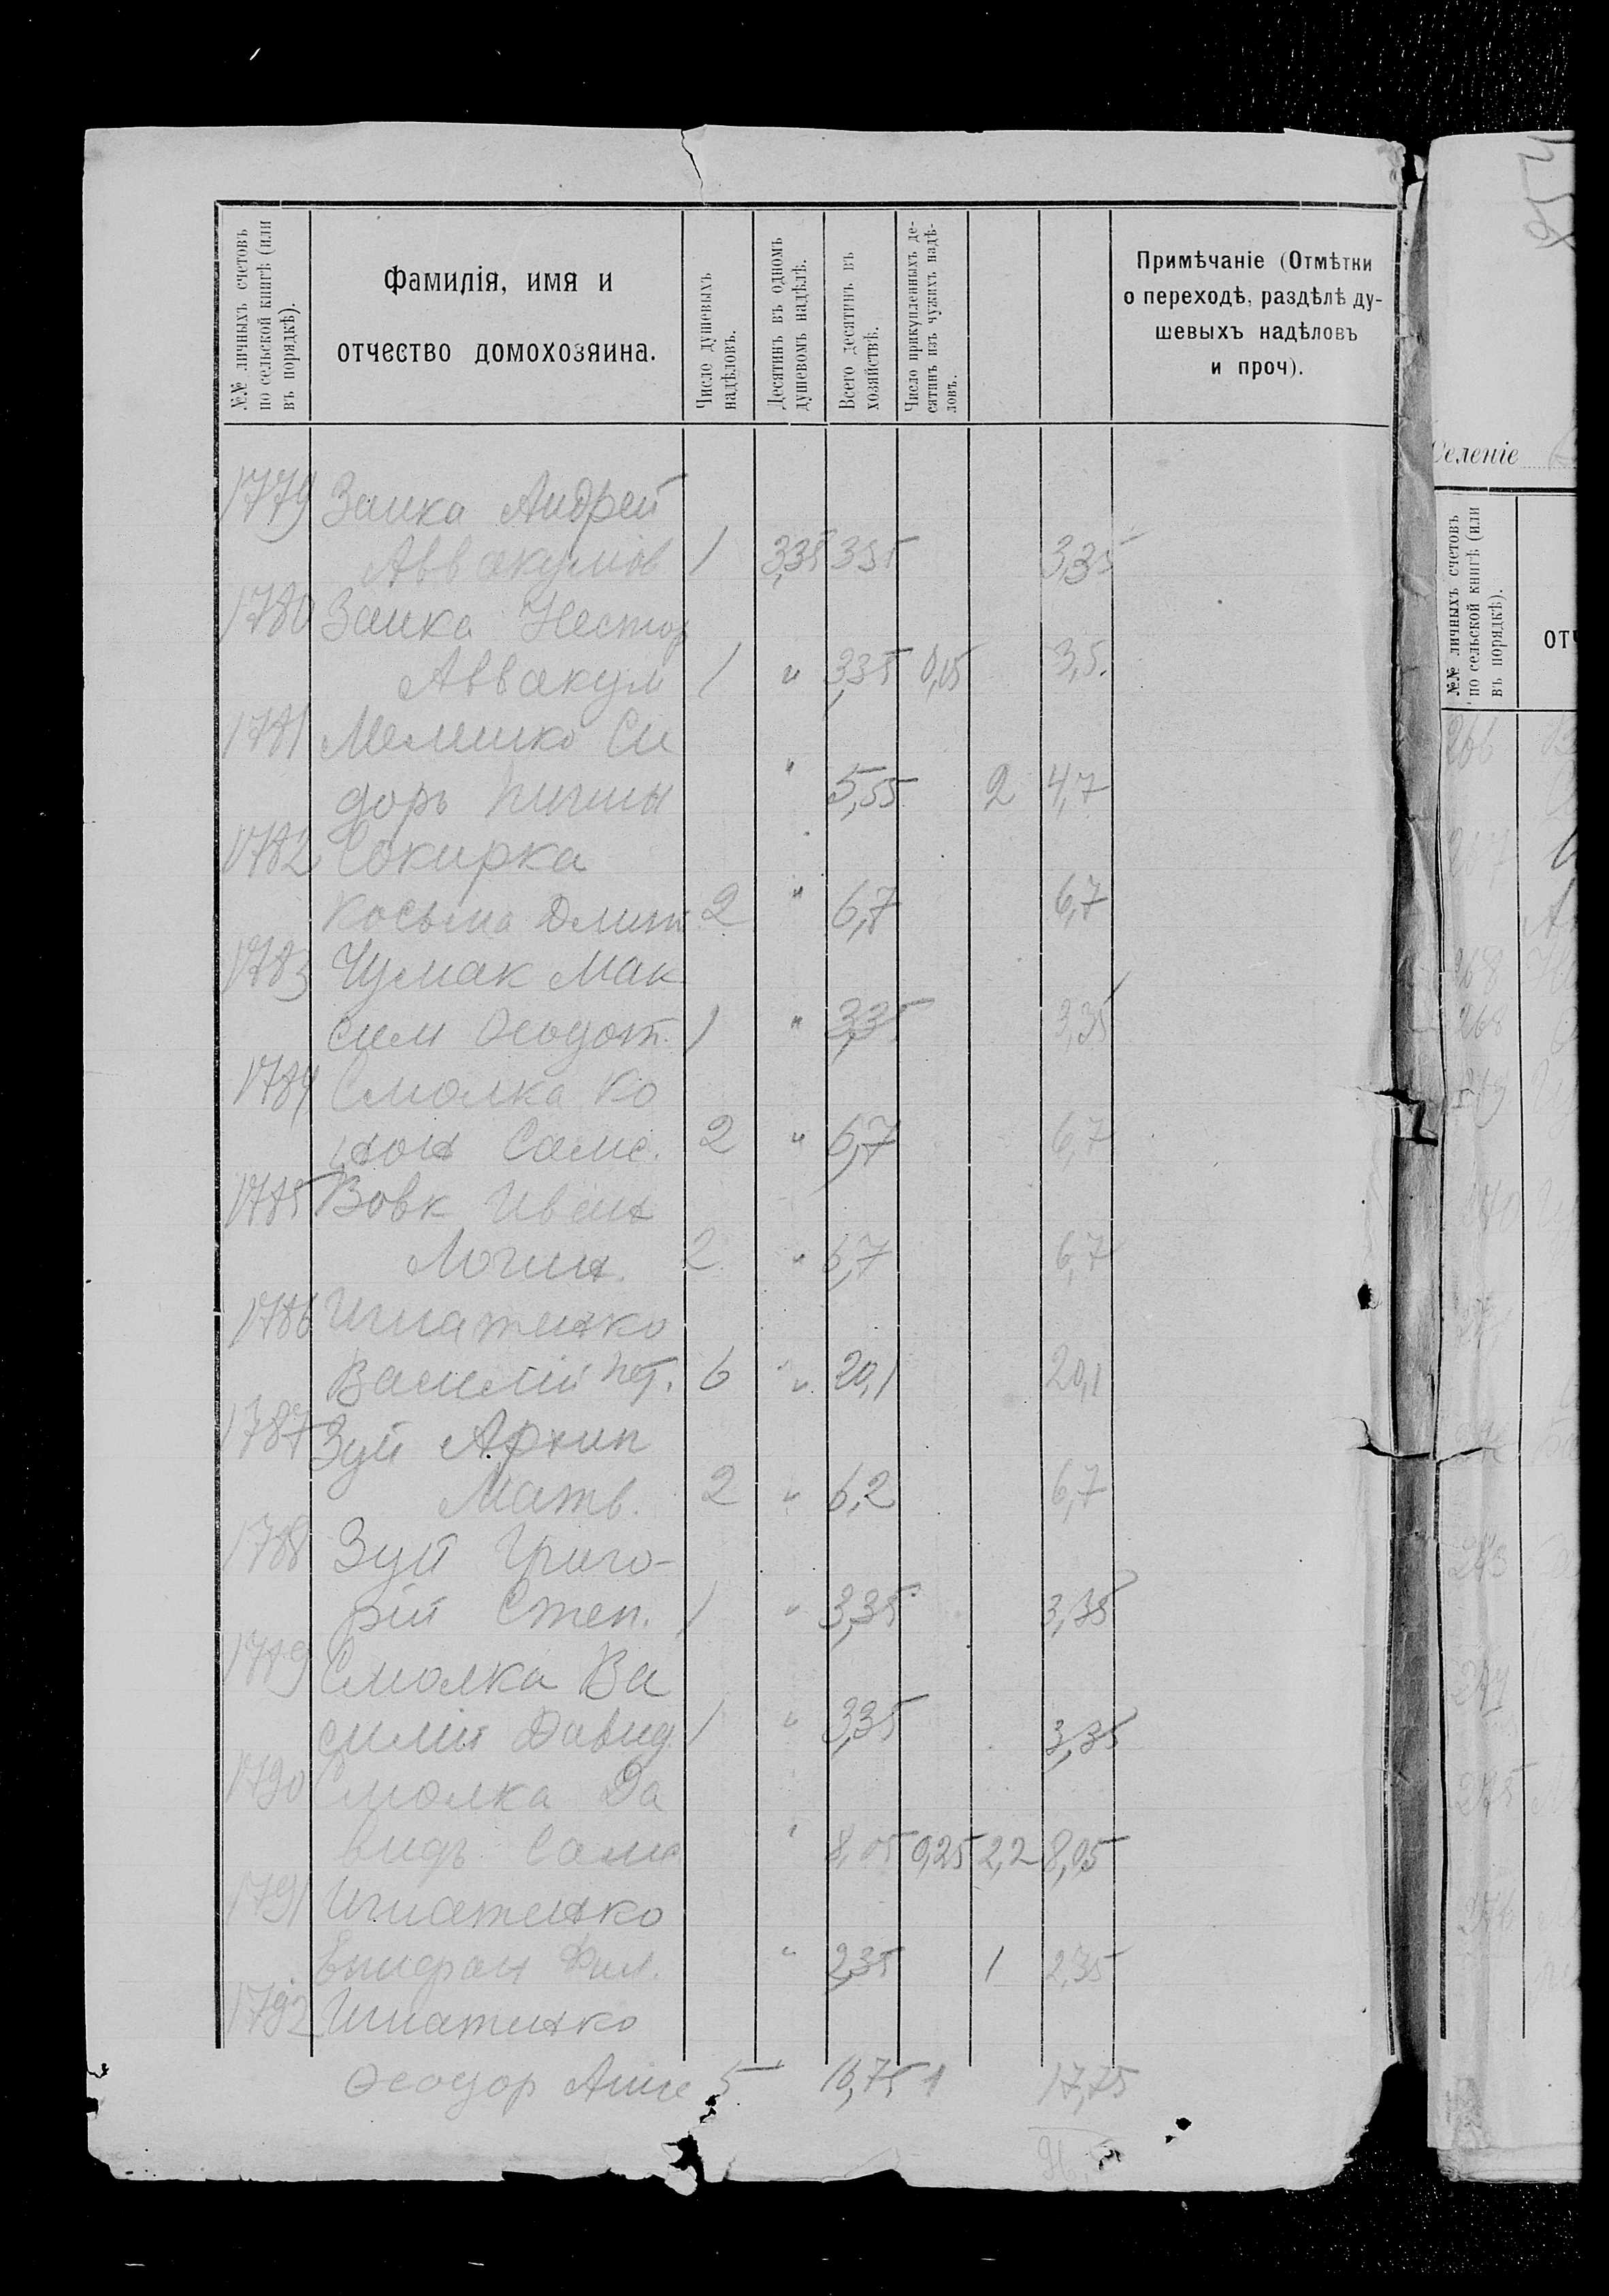 №№ личныхъ счетовъ
по сельской книгѣ (или
въ порядкѣ).
Фамилія, имя и
отчество домохозяина.
Число душевыхъ
надѣловъ.
Десятинъ въ одномъ
душевомъ надѣлѣ.
Всего десятинъ въ
хозяйствѣ.
Число прикупленныхъ де-
сятинъ изъ чужихъ надѣ-
ловъ.
Примѣчаніе (Отмѣтки
о переходѣ, раздѣлѣ ду-
шевыхъ надѣловъ
и проч).
1779 Заика Андрей
Аввакумов 1 3,35 335 3,35
1780 Заика Нестор
Аввакум 1 " 3,35 0,15 3,5.
1781 Мелешко Си
доръ " 5,55 2 4,7
1782 Сокирка
Косьма Дмит 2 " 6,7 6,7
1783 Чумак Мак
сим Ѳеодот. 1 " 3,35 3,35
1784 Смолка Ко
нон Самс. 2 " 6,7 6,7
1785 Вовк Иван
Логин. 2 " 6,7 6,7
1786 Игнатенко
Василій Пет. 6 " 20,1 20,1
1787 Зуй Архип
Матв. 2 " 6,2 6,7
1788 Зуй Григо-
рій Степ. 1 " 3,35 3,35
1789 Смолка Ва
силій Давид. 1 " 3,35 3,35
1790 Смолка Да
видъ Самс " 8,05 0,25 2,2 8,05
1791 Игнатенко
Фил. " 2,35 1 2,35
1792 Игнатенко
Ѳеодор 5 " 16,75 1 17,75
Селеніе
№№ личныхъ счетовъ
по сельской книгѣ (или
въ порядкѣ).
отч
266
267
268
268
269
270
273
274
275
276